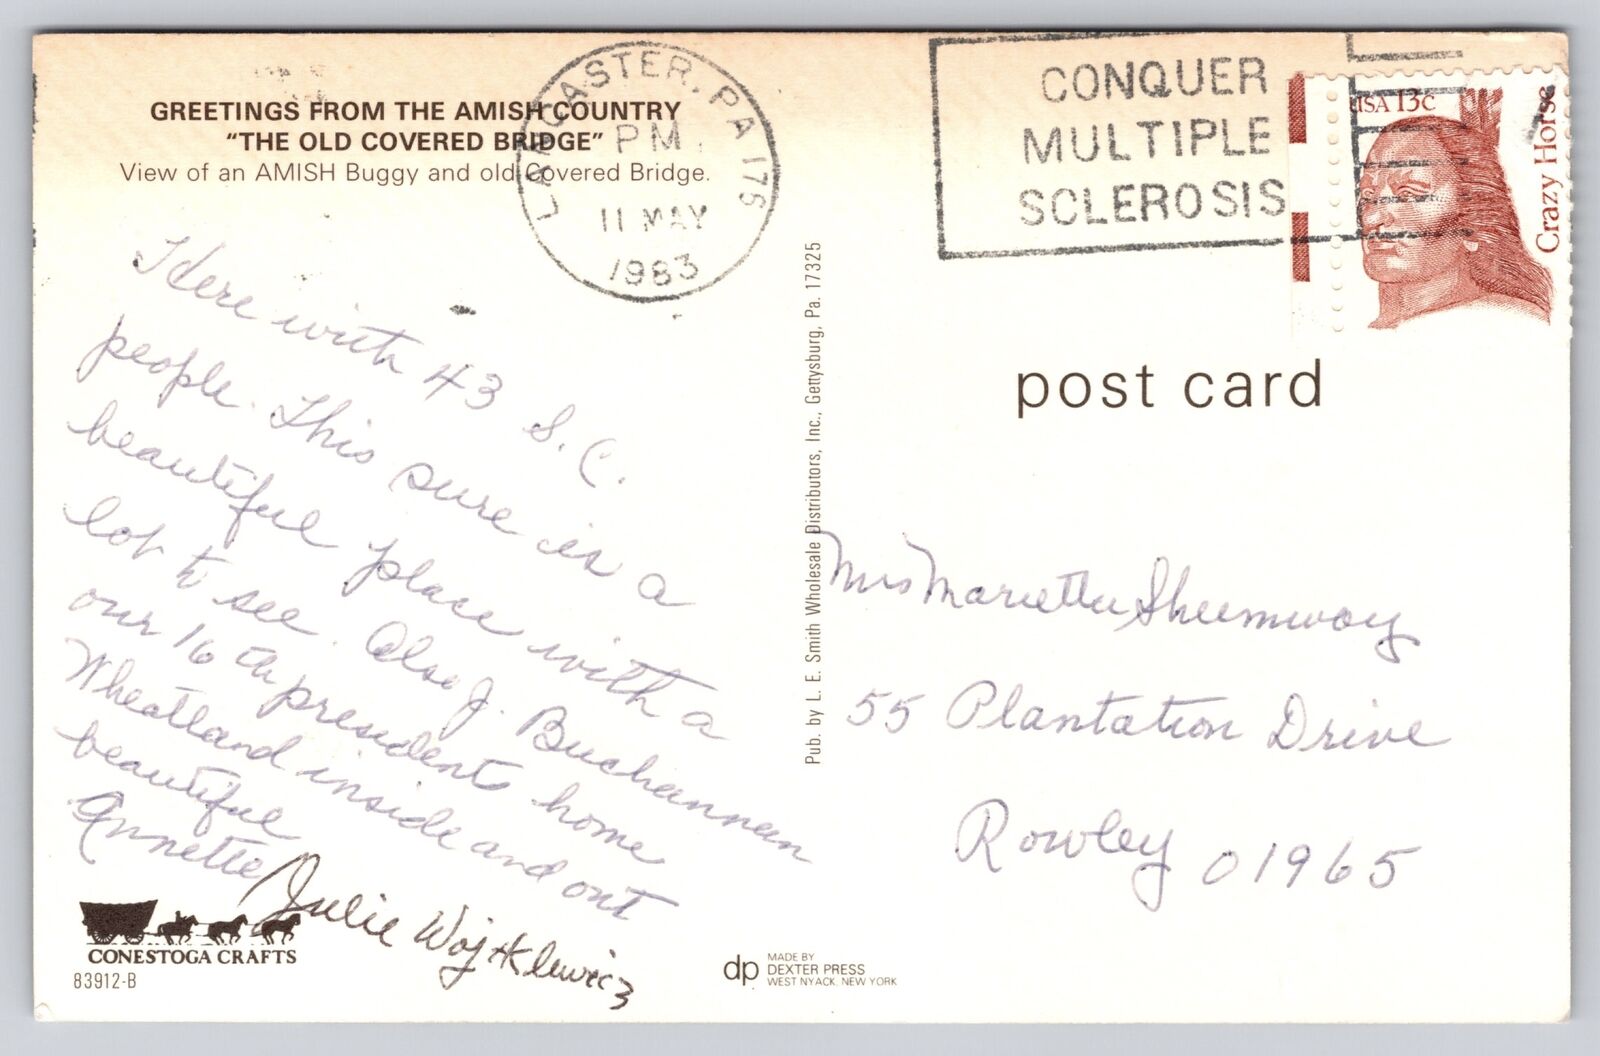 GREETINGS FROM THE AMISH COUNTRY
"THE OLD COVERED BRIDGE"
View of an AMISH Buggy and old Covered Bridge.
LANCASTER, PA 175
PM
11 MAY
1983
CONQUER
MULTIPLE
SCLEROSIS
USA 13c
Crazy Horse
Here with 43 S.C.
people. This sure is a
beautiful place with a
lot to see. Also J. Buchannen
our 16 th presidents home
Wheatland inside and out
beautiful
Annette
Julie Wojtklewicz
CONESTOGA CRAFTS
83912-B
Pub. by L. E. Smith Wholesale Distributors, Inc., Gettysburg, Pa. 17325
dp
MADE BY
DEXTER PRESS
WEST NYACK, NEW YORK
post card
Mrs Marietta Shumway
55 Plantation Drive
Rowley 01965